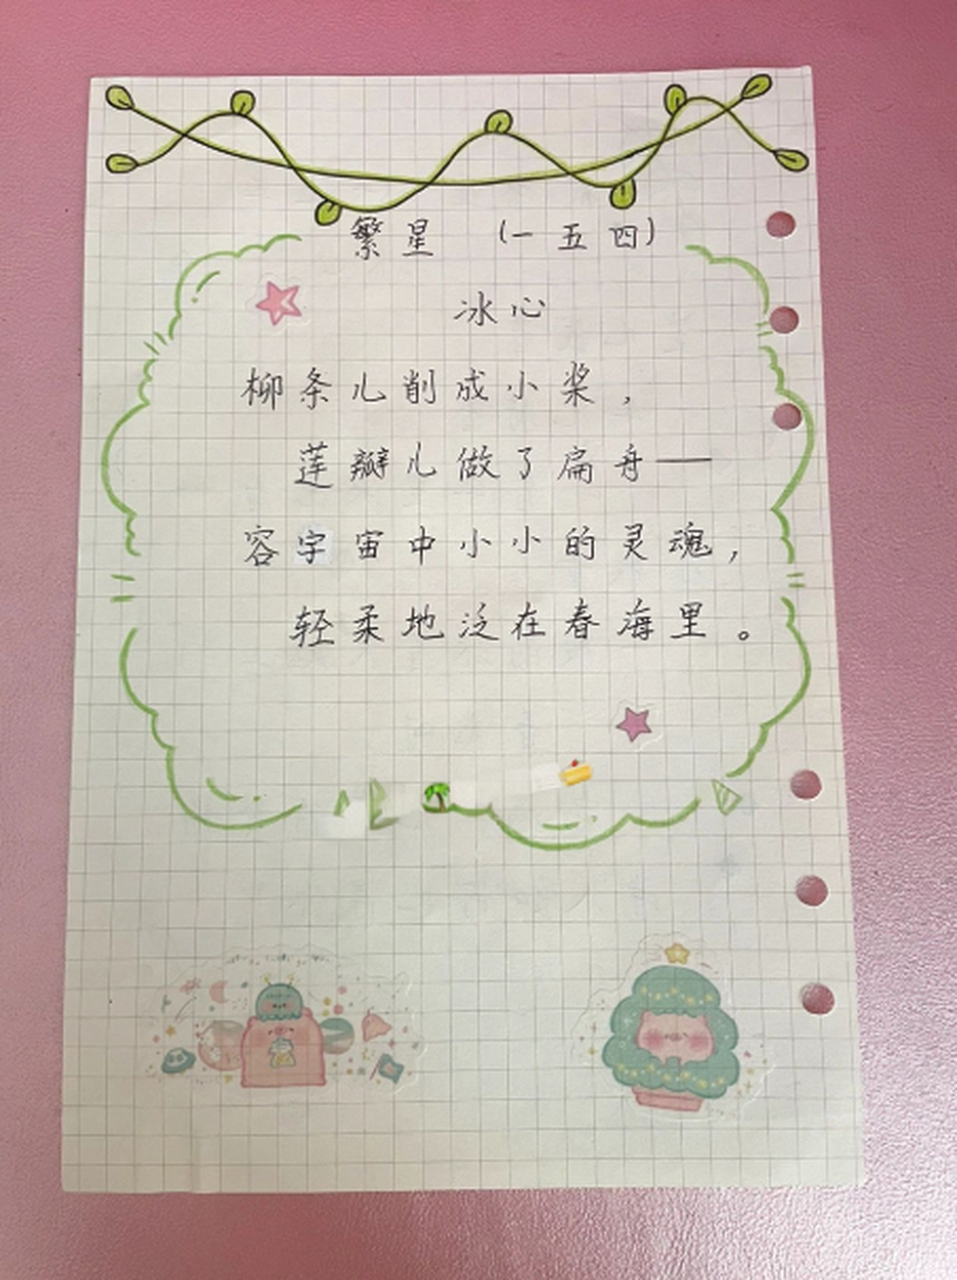 繁星 (一五四)
冰心
柳条儿削成小桨，
莲瓣儿做了扁舟——
容宇宙中小小的灵魂，
轻柔地泛在春海里。